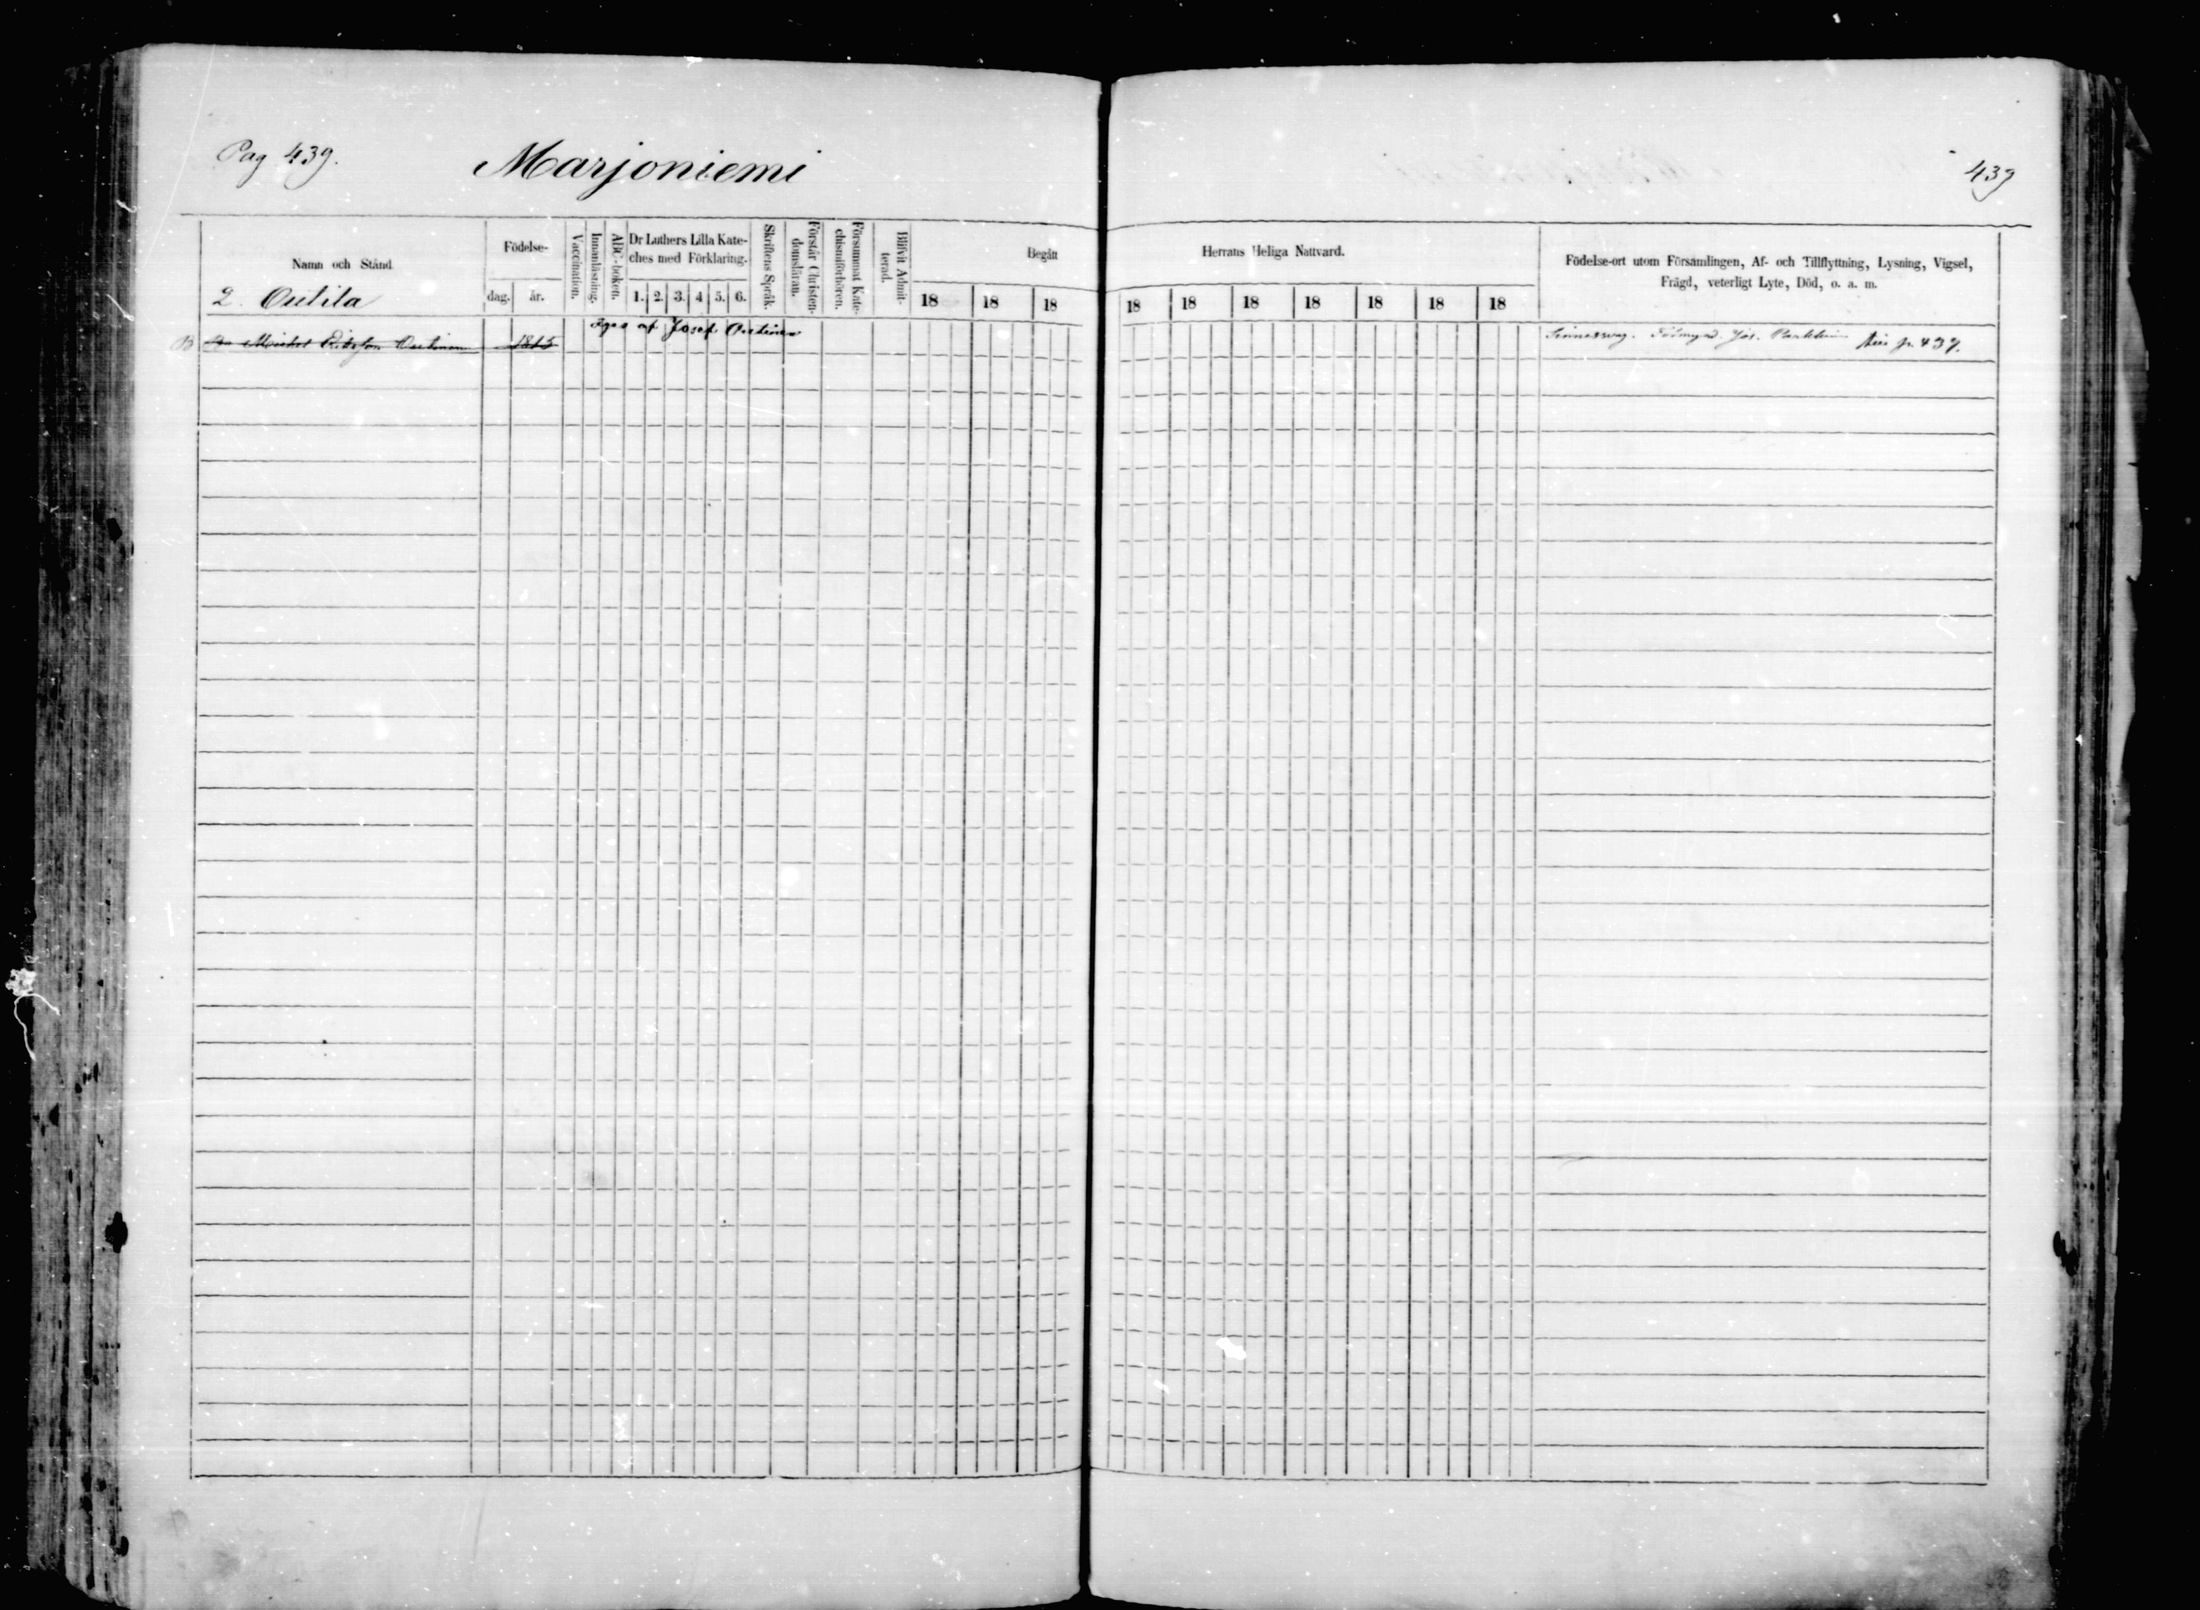 Pag 439.
Marjoniemi
439
Namn och Stånd
Födelse-
dag.
år.
Vaccination.
Innanläsning.
ABC-boken.
Dr Luthers Lilla Kate-
ches med Förklaring.
1. 2. 3. 4 5. 6.
Skriftens Språk.
Förstår Christen-
domsläran.
Försummat Kate-
chismiförhören.
Blifvit Admit-
terad.
Begått
18 18 18
Herrans Heliga Nattvard.
18 18 18 18 18 18 18
Födelse-ort utom Församlingen, Af- och Tillflyttning, Lysning, Vigsel,
Frägd, veterligt Lyte, Död, o. a. m.
2. Outila
B Michel Outinen 1815
äges af Josef Outinen
Jos. p. 437.